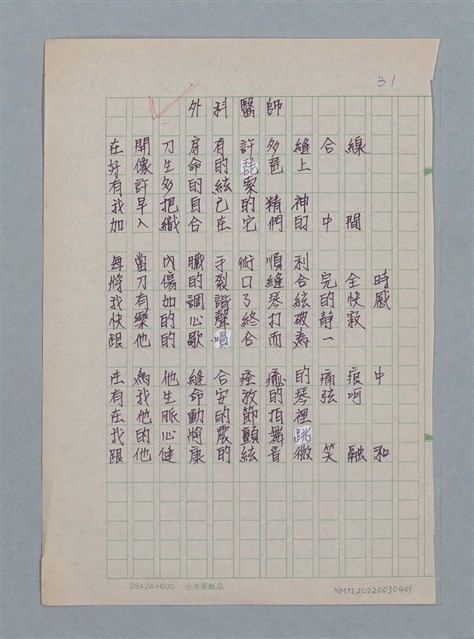 31
外科醫師
在開刀房有許多縫合線
好像生命的琵琶上
有許多的絃索
我早把自己的精神
加入織合在它們的中間
每當內臟手術順利
將刀傷的裂口縫合完全時
我有如調諧了琴絃的快感
快樂的心聲終打破靜寂
跟他的歌唱合而為一
在為他縫合痊癒的痛痕中
有我生命安放的琴弦呵
在他脈動的節拍裡
我的心將震顫舞跳
跟他健康的絃音微笑融和
25×24=600 小木屋製品
NMTL20220030401